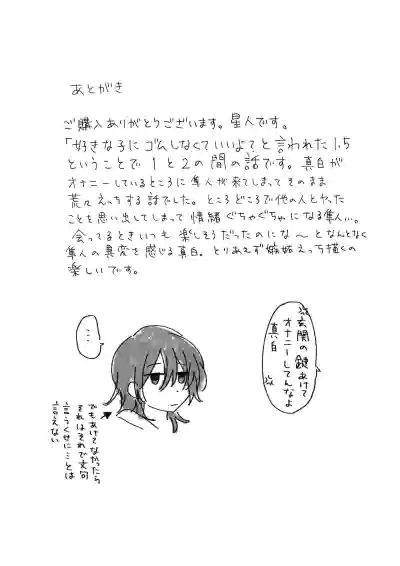 あとがき
ご購入ありがとうございます。星人です。
「好きな子にゴムしなくていいよ？と言われた1.5
ということで1と2の間の話です。真白が
オナニーしているところに隼人が来てしまってそのまま
荒々えっちする話でした。ところどころで他の人とヤった
ことを思い出してしまって情緒ぐちゃぐちゃになる隼人…。
会ってるときいつも楽しそうだったのにな〜となんとなく
隼人の異変を感じる真白。とりあえず嫉妬えっち描くの
楽しいです。
玄関の鍵あけて
オナニーしてんなよ
真白
…
でもあけてなかったら
それはそれで文句
言うくせにことは
言えない